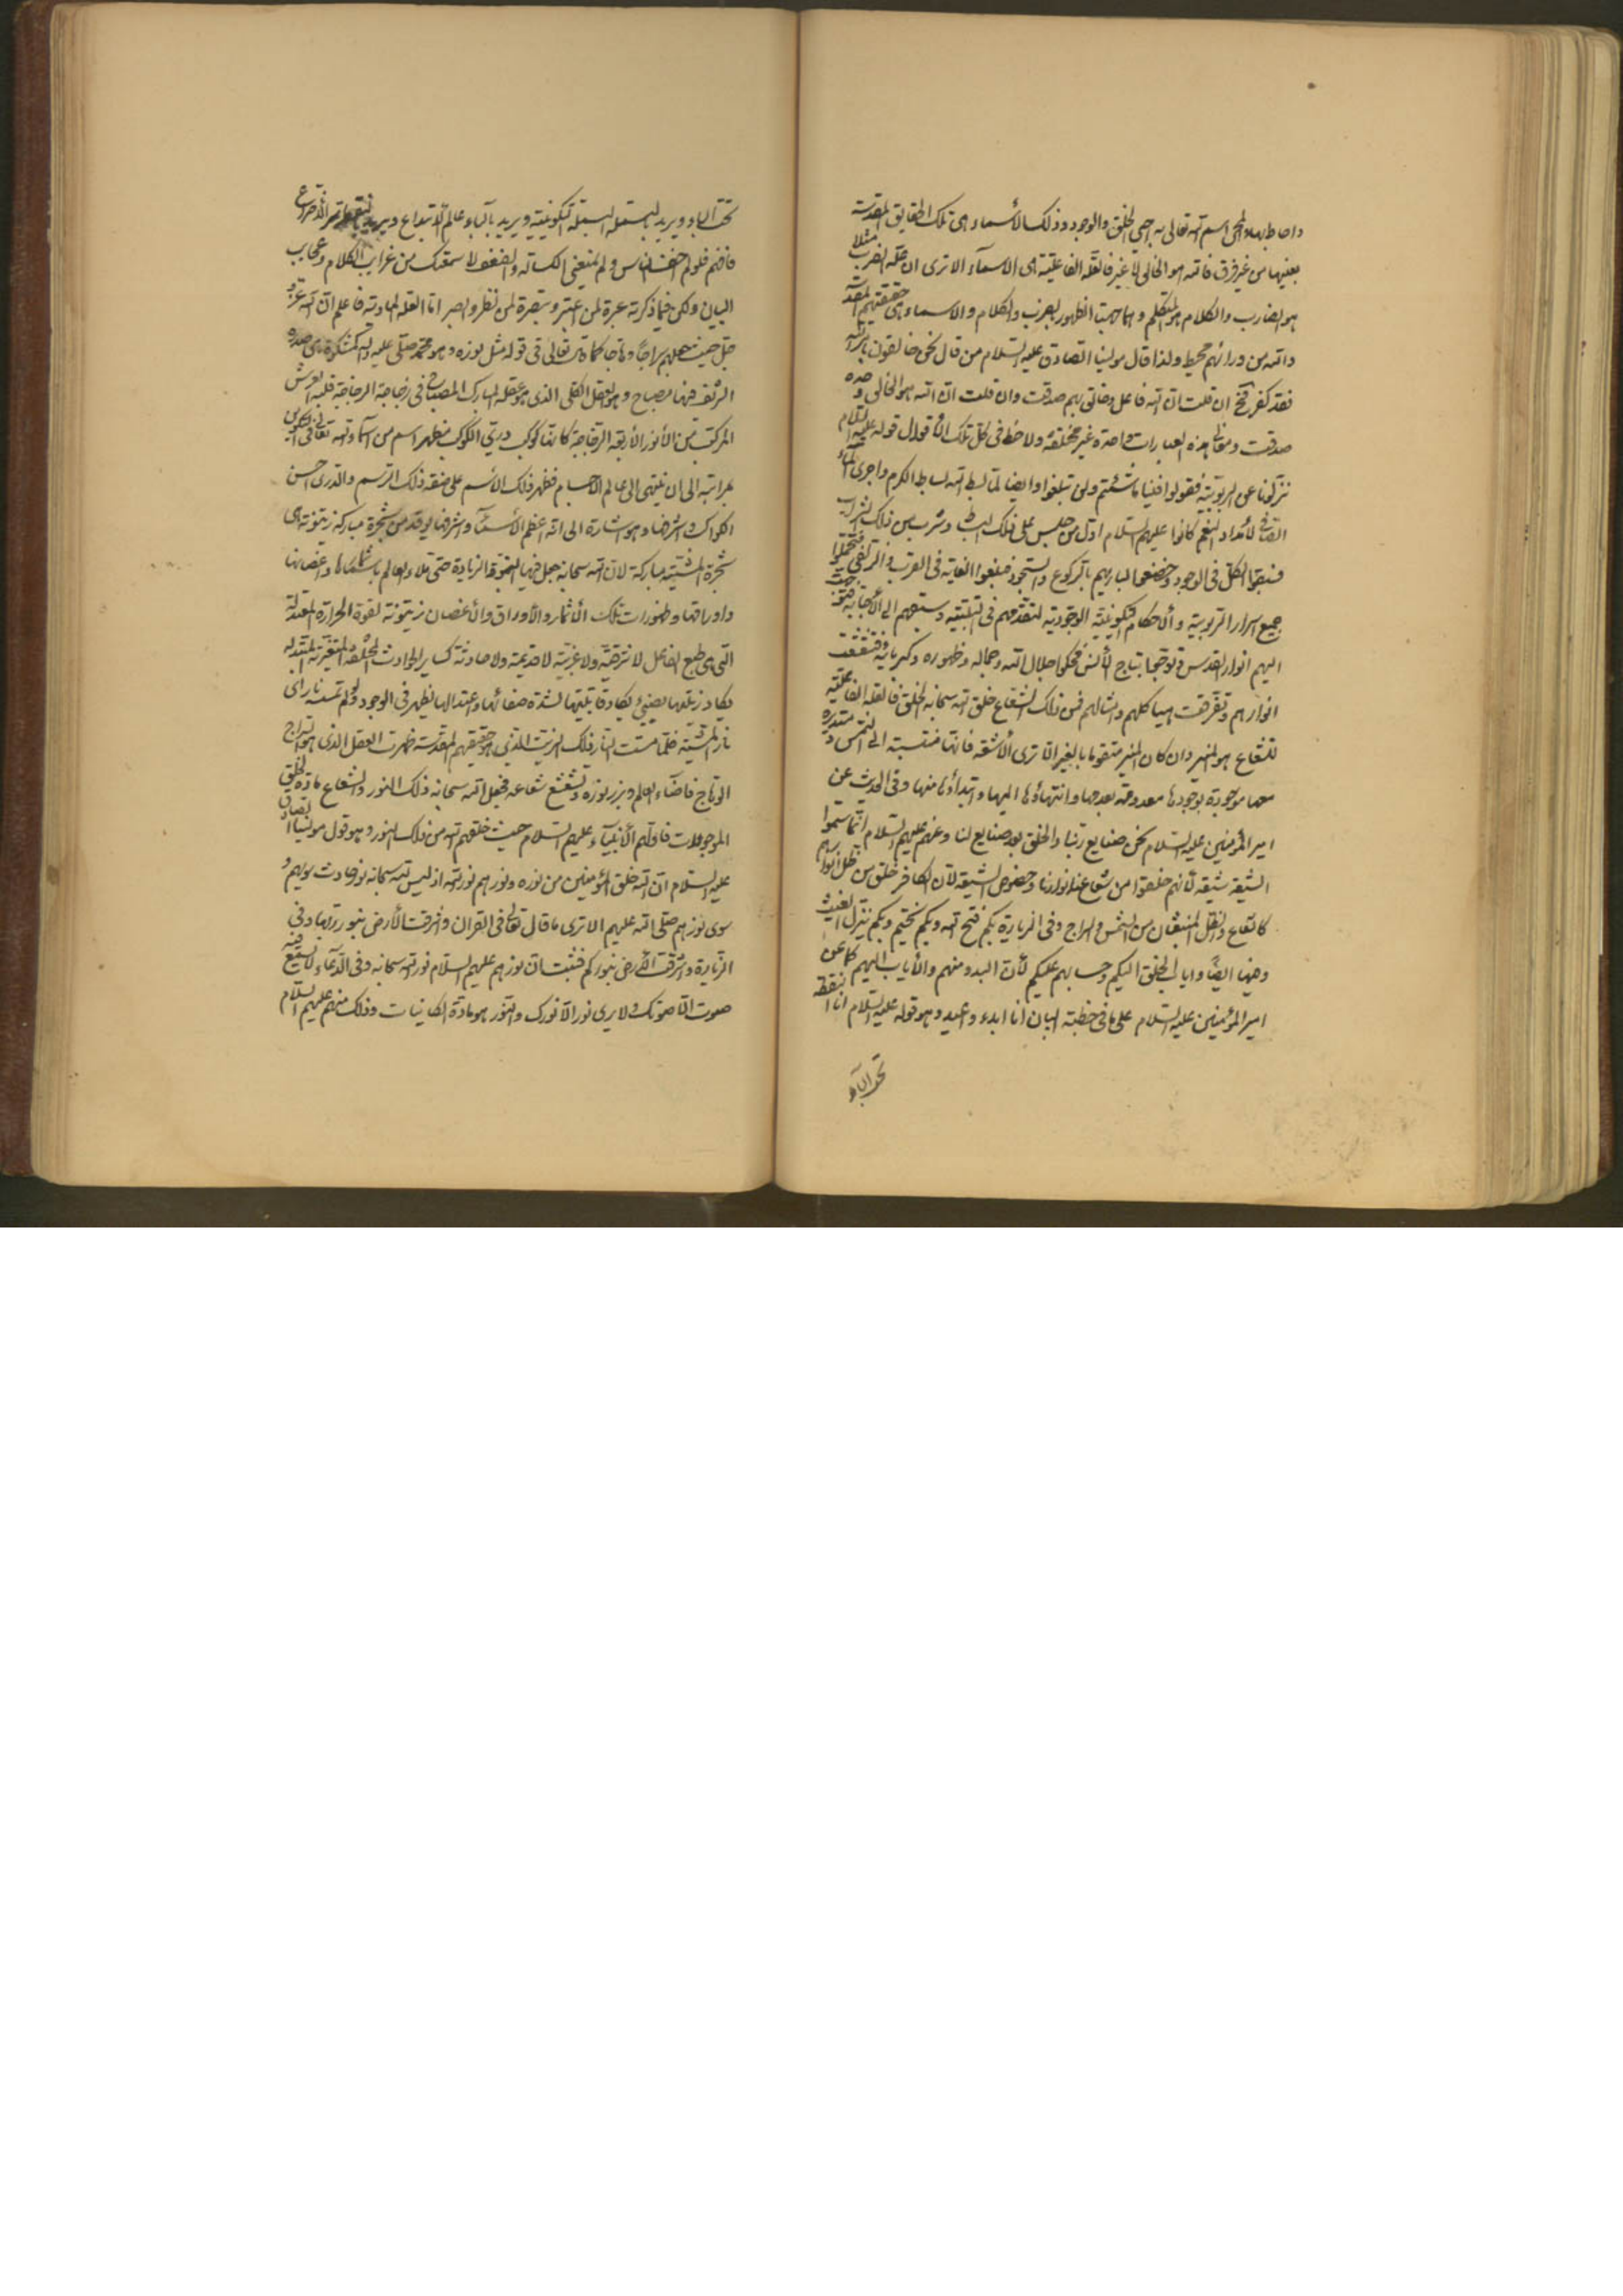 واحاط بها والمحيي اسم الله تعالى به احيى الخلق والوجود وذلك الأسماء هي تلك الحقايق المقدسة
بعينها من غير فرق فانه هو الخالق لا غير فالعلة الفاعلية هي الاسماء الا ترى ان علة الضرب مثلا
هو الضارب والكلام هو المتكلم وهما جهتا الظهور بالضرب والكلام والاسماء هي حقيقتهم المقدسة
والله من ورائهم محيط ولذا قال مولينا الصادق عليه السلام من قال نحن خالقون بامر الله
فقد كفر فح ان قلت ان الله فاعل وخالق بهم صدقت وان قلت ان الله هو الخالق وحده
صدقت ومفاد هذه العبارات واحدة غير مختلفة ولاحظ في كل تلك الأقوال قوله عليه السلام
نزلونا عن الربوبية فقولوا فينا ما شئتم ولن تبلغوا وايضا لما بسط الله بساط الكرم واجرى الماء
لأمداد النعم كانوا عليهم السلام اول من جلس على ذلك البساط وشرب من ذلك الشراب
فسبقوا الكل في الوجود وخضعوا لبارئهم بالركوع والسجود فبلغوا الغاية في القرب والزلفى فتحملوا
جميع اسرار الربوبية والأحكام التكوينية الوجودية لتقدمهم في التلبية وسبقهم الى الأجابة
اليهم انوار القدس وتوجوا بتاج الأنس فحكوا جلال الله وجماله وظهوره وكبريائه فتشعشعت
انوارهم وتفرقت هياكلهم وامثالهم فمن ذلك الشعاع خلق الله سبحانه الخلق فالعلة الفاعلية
للشعاع هو المنير وان كان المنير متقوما بالغير الا ترى الأشعة فانها منتسبة الى الشمس
معها موجودة بوجودها معدومة بعدمها وانتهاؤها اليها وابتداؤها منها وفي الحديث عن
امير المؤمنين عليه السلام نحن صنايع ربنا والخلق بعد صنايع لنا وعنهم عليهم السلام انما سموا
الشيعة شيعة لأنهم خلقوا من شعاع انوارنا وخصوص الشيعة لأن الكافر خلق من ظل
كالشعاع والظل المنبعثان من الشمس والسراج وفي الزيارة بكم فتح الله وبكم يختم وبكم ينزل الغيث
وفيها ايضًا واياب الخلق اليكم وحسابهم عليكم لأن البدء منهم والأياب اليهم كما عن
امير المؤمنين عليه السلام على ما في خطبة البيان انا ابدء واعيد وهو قوله عليه السلام انا النقطة
تحت الباء
تحت الباء ويريد بالبسملة البسملة التكوينية ويريد بالباء عالم الأبداع ويريد بالنقطة الأختراع
فافهم فلولا خوف الناس ولم يمنعني الكسالة والضعف لاسمعتك من غرايب الكلام وعجايب
البيان ولكن فيما ذكرته عبرة لمن اعتبر وتبصرة لمن نظر وابصر اما العلة المادية فاعلم ان الله عز و
جل حيث جعلهم سراجًا وهاجا كما قال تعالى في قوله مثل نوره وهو محمد صلى الله عليه وآله كمشكوة هي صدره
الشريف فيها مصباح وهو العقل الكلي الذي هو عقله المبارك المصباح في زجاجة الزجاجة قلبه العرش
المركب من الأنوار الأربعة الزجاجة كانها كوكب دري الكوكب مظهر اسم من اسماء الله تعالى في
بمراتبه الى ان ينتهي الى عالم الأجسام فظهر ذلك الأسم على صفة ذلك الرسم والدري احسن
الكواكب واشرفها وهو اشارة الى انه اعظم الأسماء واشرفها يوقد من شجرة مباركة زيتونة هي
شجرة المشية مباركة لان الله سبحانه جعل فيها النمو والزيادة حتى ملاء العالم باثمارها واغصانها
واوراقها وظهورات تلك الأثمار والأوراق والأغصان زيتونة لقوة الحرارة المعتدلة
التي هي طبع الفاعل لا شرقية ولا غربية لا قديمة ولا حادثة كساير الحوادث المختلفة المتغيرة المتبدلة
يكاد زيتها يضيئ يكاد قابليتها لشدة صفائها واعتدالها يظهر في الوجود ولو لم تمسسه نار اي
نار المشية فلما مست النار ذلك الزيت الذي هو حقيقتهم المقدسة ظهرت العقل الذي هو السراج
الوهاج فاضاء العالم وبرز نوره وتشعشع شعاعه فجعل الله سبحانه ذلك النور والشعاع مادة لخلق
الموجودات فاولهم الأنبياء عليهم السلام حيث خلقهم الله من ذلك النور وهو قول مولينا الصادق
عليه السلام ان الله خلق المؤمنين من نوره ونورهم نور الله اذ ليس لله سبحانه نور حادث سواهم و
سوى نورهم صلى الله عليهم الا ترى ما قال تعالى في القران واشرقت الأرض بنور ربها وفي
الزيارة واشرقت الأرض بنوركم فثبت ان نورهم عليهم السلام نور الله سبحانه وفي الدعاء لا يسمع فيه
صوت الا صوتك ولا يرى نور الا نورك والنور هو مادة الكاينات وذلك منهم عليهم السلام